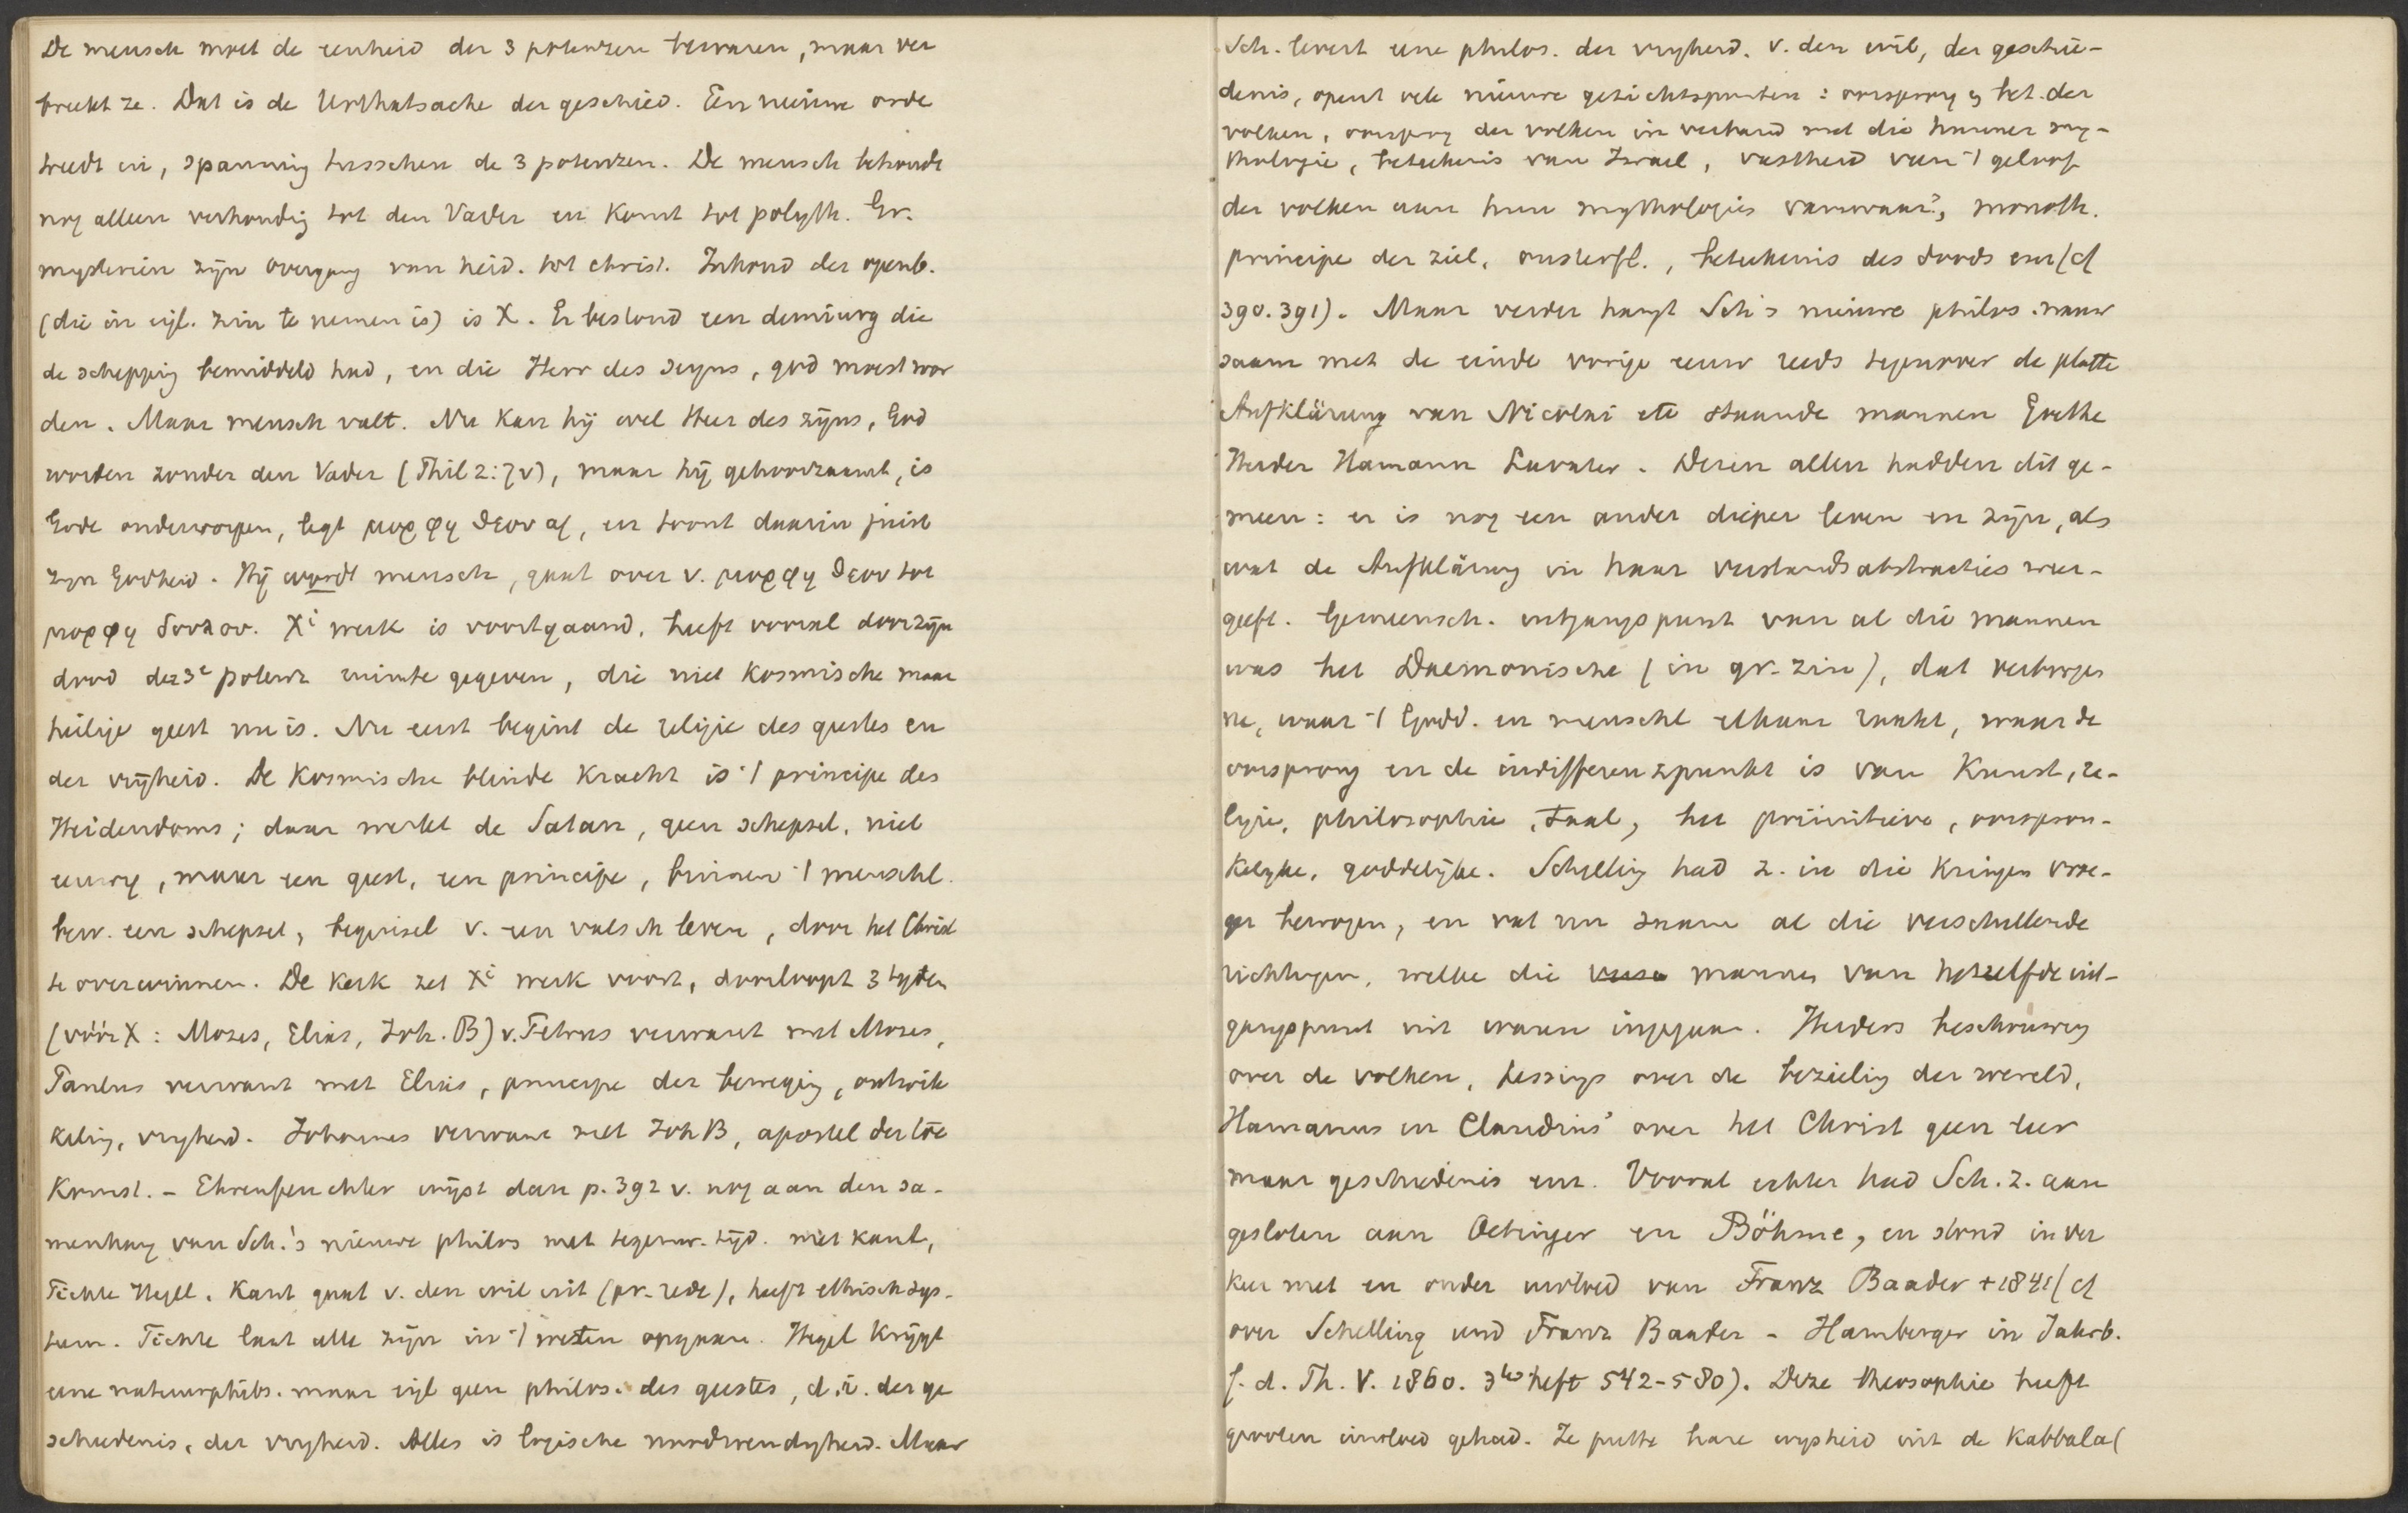 De mensch moet de eenheid der 3 potenzen bewaren, maar ver
breekt ze. Dat is de Urthatsache der geschied. Een nieuwe orde
treedt in, spanning tusschen de 3 potenzen. De mensch behoudt
nog alleen verhouding tot den Vader en komt tot polyth. Gr.
mysterien zijn overgang van heid. tot christ. Inhoud der openb.
(die in eijl. zin te nemen is) is X. Er bestond een demiurg die
de schepping bemiddeld had, en die Herr des Seyns, god moest wor
den. Maar mensch valt. Nu kan hij wel Heer des zijns, God
worden zonder den Vader (Phil 2:7v), maar hij gehoorzaamt, is
Gode onderworpen, legt μορφη θεου af, en toont daarin juist
zijn Godheid. Hij wordt mensch, gaat over v. μορφη θεου tot
μορφη δουλου. Xi werk is voortgaand, heeft vooral door zijn
dood der 3e potenz ruimte gegeven, die niet kosmische maar
heilige geest nu is. Nu eerst begint de religie des geestes en
der vrijheid. De Kosmische blinde Kracht is -l principe des
Heidendoms; daar werkt de Satan, geen schepsel, niet
eeuwig, maar een geest, een principe, binnen -l menschl.
bew. een schepsel, beginsel v. een valsch leven, door het Christ
te overwinnen. De Kerk zet Xi werk voort, doorloopt 3 tijden
(vóór X: Mozes, Elias, Joh. B) v. Petrus verwant met Mozes,
Paulus verwant met Elias, principe der beweging, ontwik
keling, vryheid. Johannes verwant met Joh B, apostel der toe
Komst. - Ehrenfeuchter wijst dan p. 392 v. nog aan den sa-
menhang van Sch.'s nieuwe philos met tegenw. tijd. met Kant,
Fichte Hegel. Kant gaat v. den wil uit (pr. rede), heeft ethisch sys-
teem. Fichte laat alle zijn in -l weten opgaan. Hegel Krijgt
eene natuurphilos. maar eijl geen philos. des geestes, d.i. der ge
schiedenis, der vryheid. Alles is logische noodwendigheid. Maar
Sch. levert eene philos. der vryheid. v. den wil, der geschie-
denis, opent vele nieuwe gezichtspunten: oorsprong en bet. der
volken, oorsprong der volken in verband met die hunner my-
thologie, beteekenis van Israel, vastheid van -l geloof
der volken aan hun mythologies vanwaar?, monoth.
principe der ziel, onsterfl., beteekenis des doods enz (cf
390. 391). Maar verder hangt Sch's nieuwe philos. nauw
saam met de einde vorige eeuw reeds tegenover de platte
Aufklärung van Nicolai etc staande mannen Goethe
Herder Hamann Lavater. Dezen allen hadden dit ge-
meen: er is nog een ander dieper leven en zijn, als
wat de Aufklärung in haar verstandsabstracties weer-
geeft. Gemeensch. uitgangspunt van al die mannen
was het Daemonische (in gr. zin), dat verborge
ne, waar -l Godd. en menschl elkaar raakt, waar de
oorsprong en de indifferenzpunkt is van Kunst, re-
ligie, philosophie, taal, het primitieve, oorspron-
kelyke, goddelijke. Schelling had z. in die Kringen vroe-
ger bewogen, en vat nu saam al die verschillende
richtingen, welke die mannen van hetzelfde uit-
gangspunt uit waren ingegaan. Herders beschouwing
over de volken, Lessings over de bezieling der wereld,
Hamanns en Claudius' over het Christ geen leer
maar geschiedenis enz. Vooral echter had Sch. z. aan
gesloten aan Oetinger en Böhme, en stond in ver
keer met en onder invloed van Franz Baader +1841 (cf
over Schelling und Franz Baader - Hamberger in Jahrb.
f. d. Th. V. 1860. 3tes heft 542-580). Deze theosophie heeft
grooten invloed gehad. Ze putte hare wysheid uit de Kabbala (